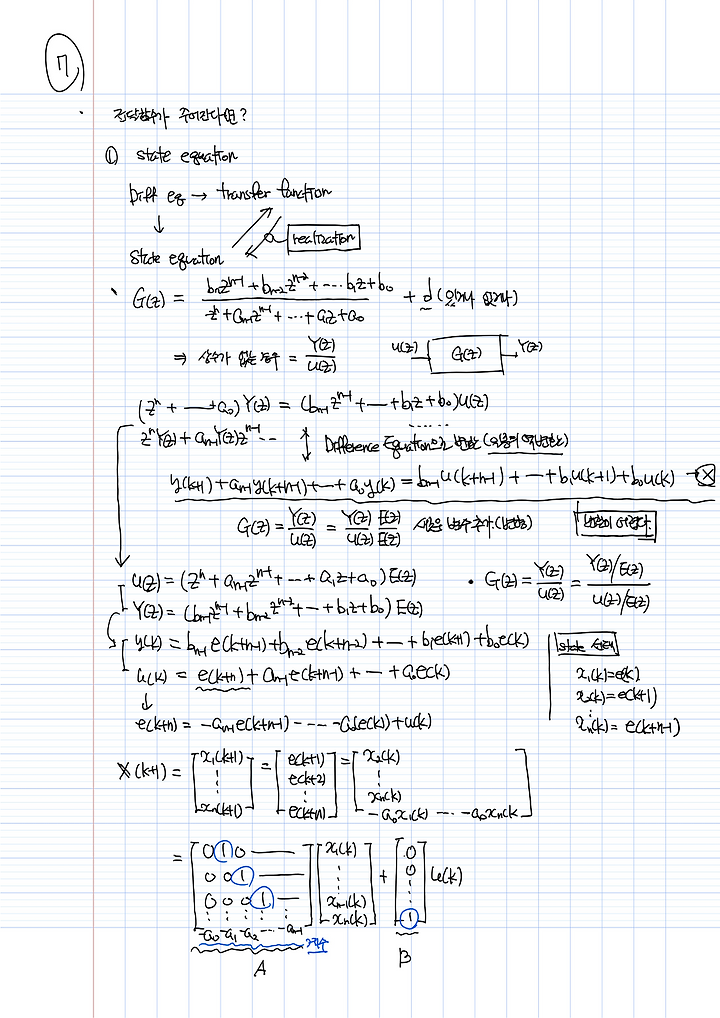 7
· 전달함수가 주어진다면?
① state equation
Diff eq → transfer function
↓
State equation realization
G(z) = (bₙ₋₁zⁿ⁻¹ + bₙ₋₂zⁿ⁻² + ⋯ b₁z + b₀) / (zⁿ + aₙ₋₁zⁿ⁻¹ + ⋯ + a₁z + a₀) + d
⇒ 상수가 없는 경우 = Y(z)/U(z) U(z) → G(z) → Y(z)
(zⁿ + ⋯ + a₀)Y(z) = (bₙ₋₁zⁿ⁻¹ + ⋯ + b₁z + b₀)U(z)
zⁿY(z) + aₙ₋₁Y(z)zⁿ⁻¹ ⋯ ↕ Difference Equation으로 변환
y(k+1) + aₙ₋₁y(k+n-1) + ⋯ + a₀y(k) = bₙ₋₁u(k+n-1) + ⋯ + b₁u(k+1) + b₀u(k) → ⓧ
G(z) = Y(z)/U(z) = Y(z)/U(z) E(z)/E(z) 새로운 변수 추가
U(z) = (zⁿ + aₙ₋₁zⁿ⁻¹ + ⋯ + a₁z + a₀)E(z) · G(z) = Y(z)/U(z) = (Y(z)/E(z)) / (U(z)/E(z))
Y(z) = (bₙ₋₁zⁿ⁻¹ + bₙ₋₂zⁿ⁻² + ⋯ + b₁z + b₀)E(z)
y(k) = bₙ₋₁e(k+n-1) + bₙ₋₂e(k+n-2) + ⋯ + b₁e(k+1) + b₀e(k)
u(k) = e(k+n) + aₙ₋₁e(k+n-1) + ⋯ + a₀e(k)
↓
e(k+n) = -aₙ₋₁e(k+n-1) - ⋯ - a₀e(k) + u(k)
state 선택
x₁(k) = e(k)
x₂(k) = e(k+1)
⋮
xₙ(k) = e(k+n-1)
X(k+1) = [x₁(k+1) ⋮ xₙ(k+1)] = [e(k+1) e(k+2) ⋮ e(k+n)] = [x₂(k) ⋮ xₙ(k) -a₀x₁(k) ⋯ -a₀xₙ(k]
= [0 1 0 — ; 0 0 1 — ; 0 0 0 1 — ; ⋮ ; -a₀ -a₁ -a₂ ⋯ -aₙ₋₁] [x₁(k) ⋮ xₙ₋₁(k) xₙ(k)] + [0 0 ⋮ 1] u(k)
계수
A B